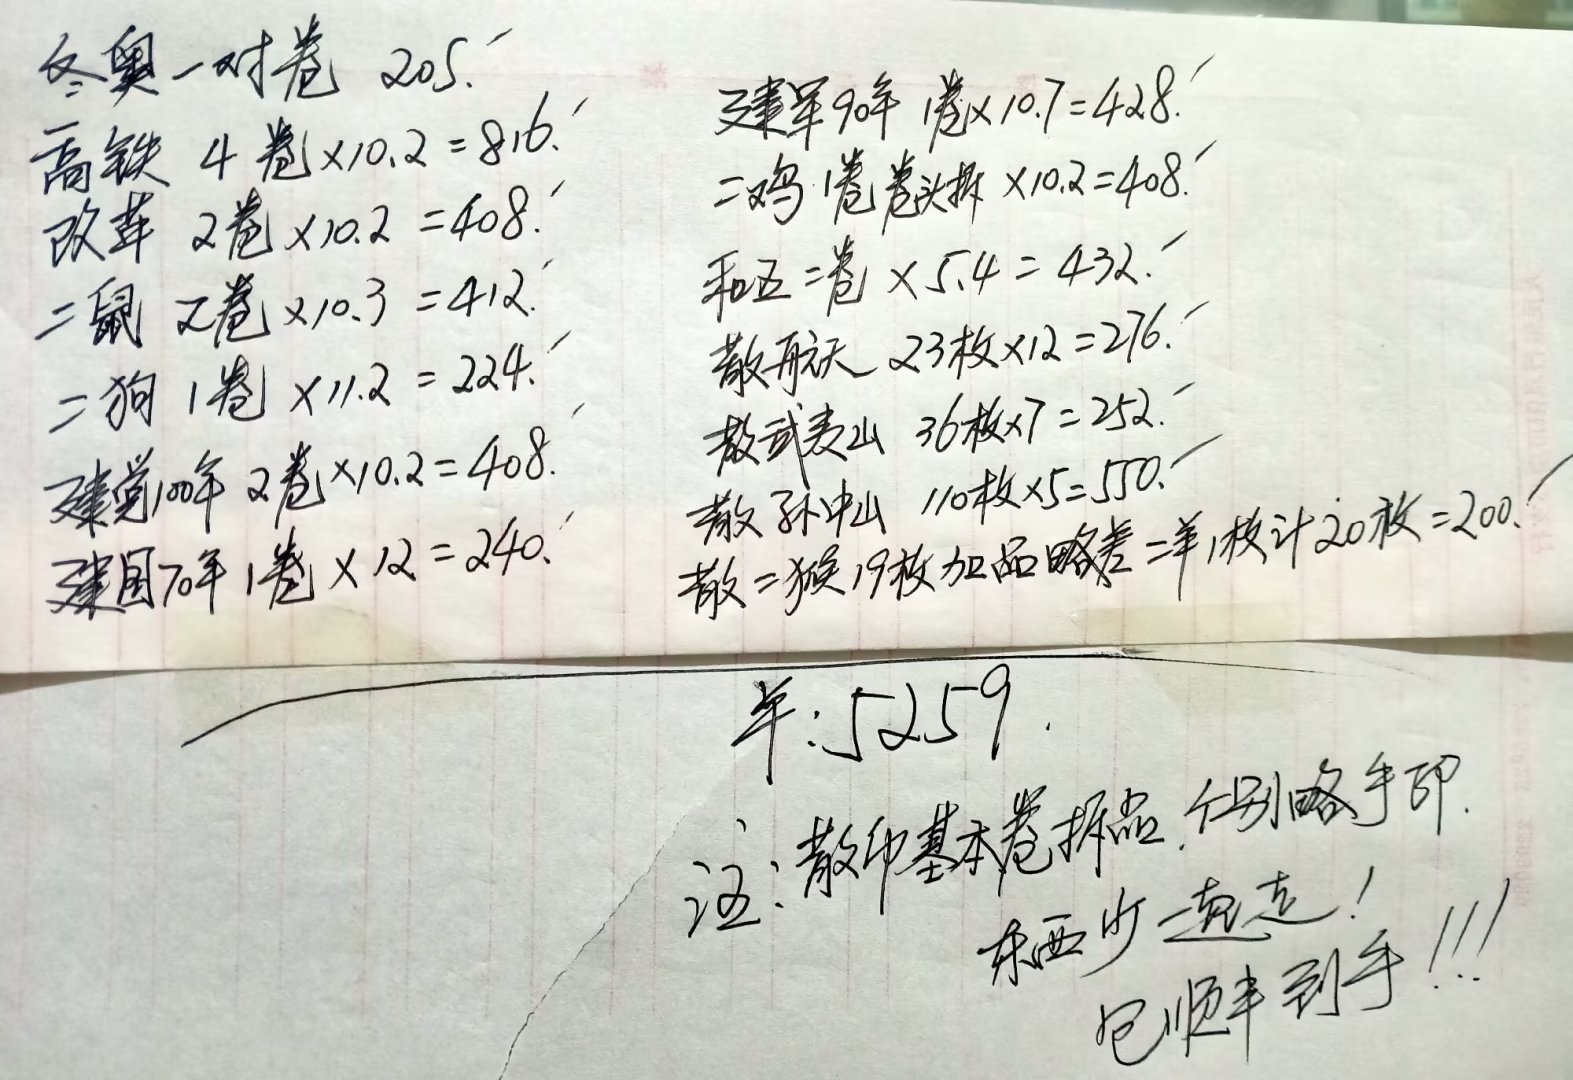 冬奥一对卷 205.
高铁 4卷×10.2=816.
改革 2卷×10.2=408.
二鼠 2卷×10.3=412.
二狗 1卷×11.2=224.
建党100年 2卷×10.2=408.
建国70年 1卷×12=240.
建军90年 1卷×10.7=428.
二鸡 1卷卷头拆×10.2=408.
和五二卷×5.4=432.
散航天 23枚×12=276.
散武夷山 36枚×7=252.
散孙中山 110枚×5=550.
散二猴19枚加品略差二羊1枚计20枚=200.
羊:5259.
注:散币基本卷拆品.个别略手印.
东西少一起走!
包顺丰到手!!!